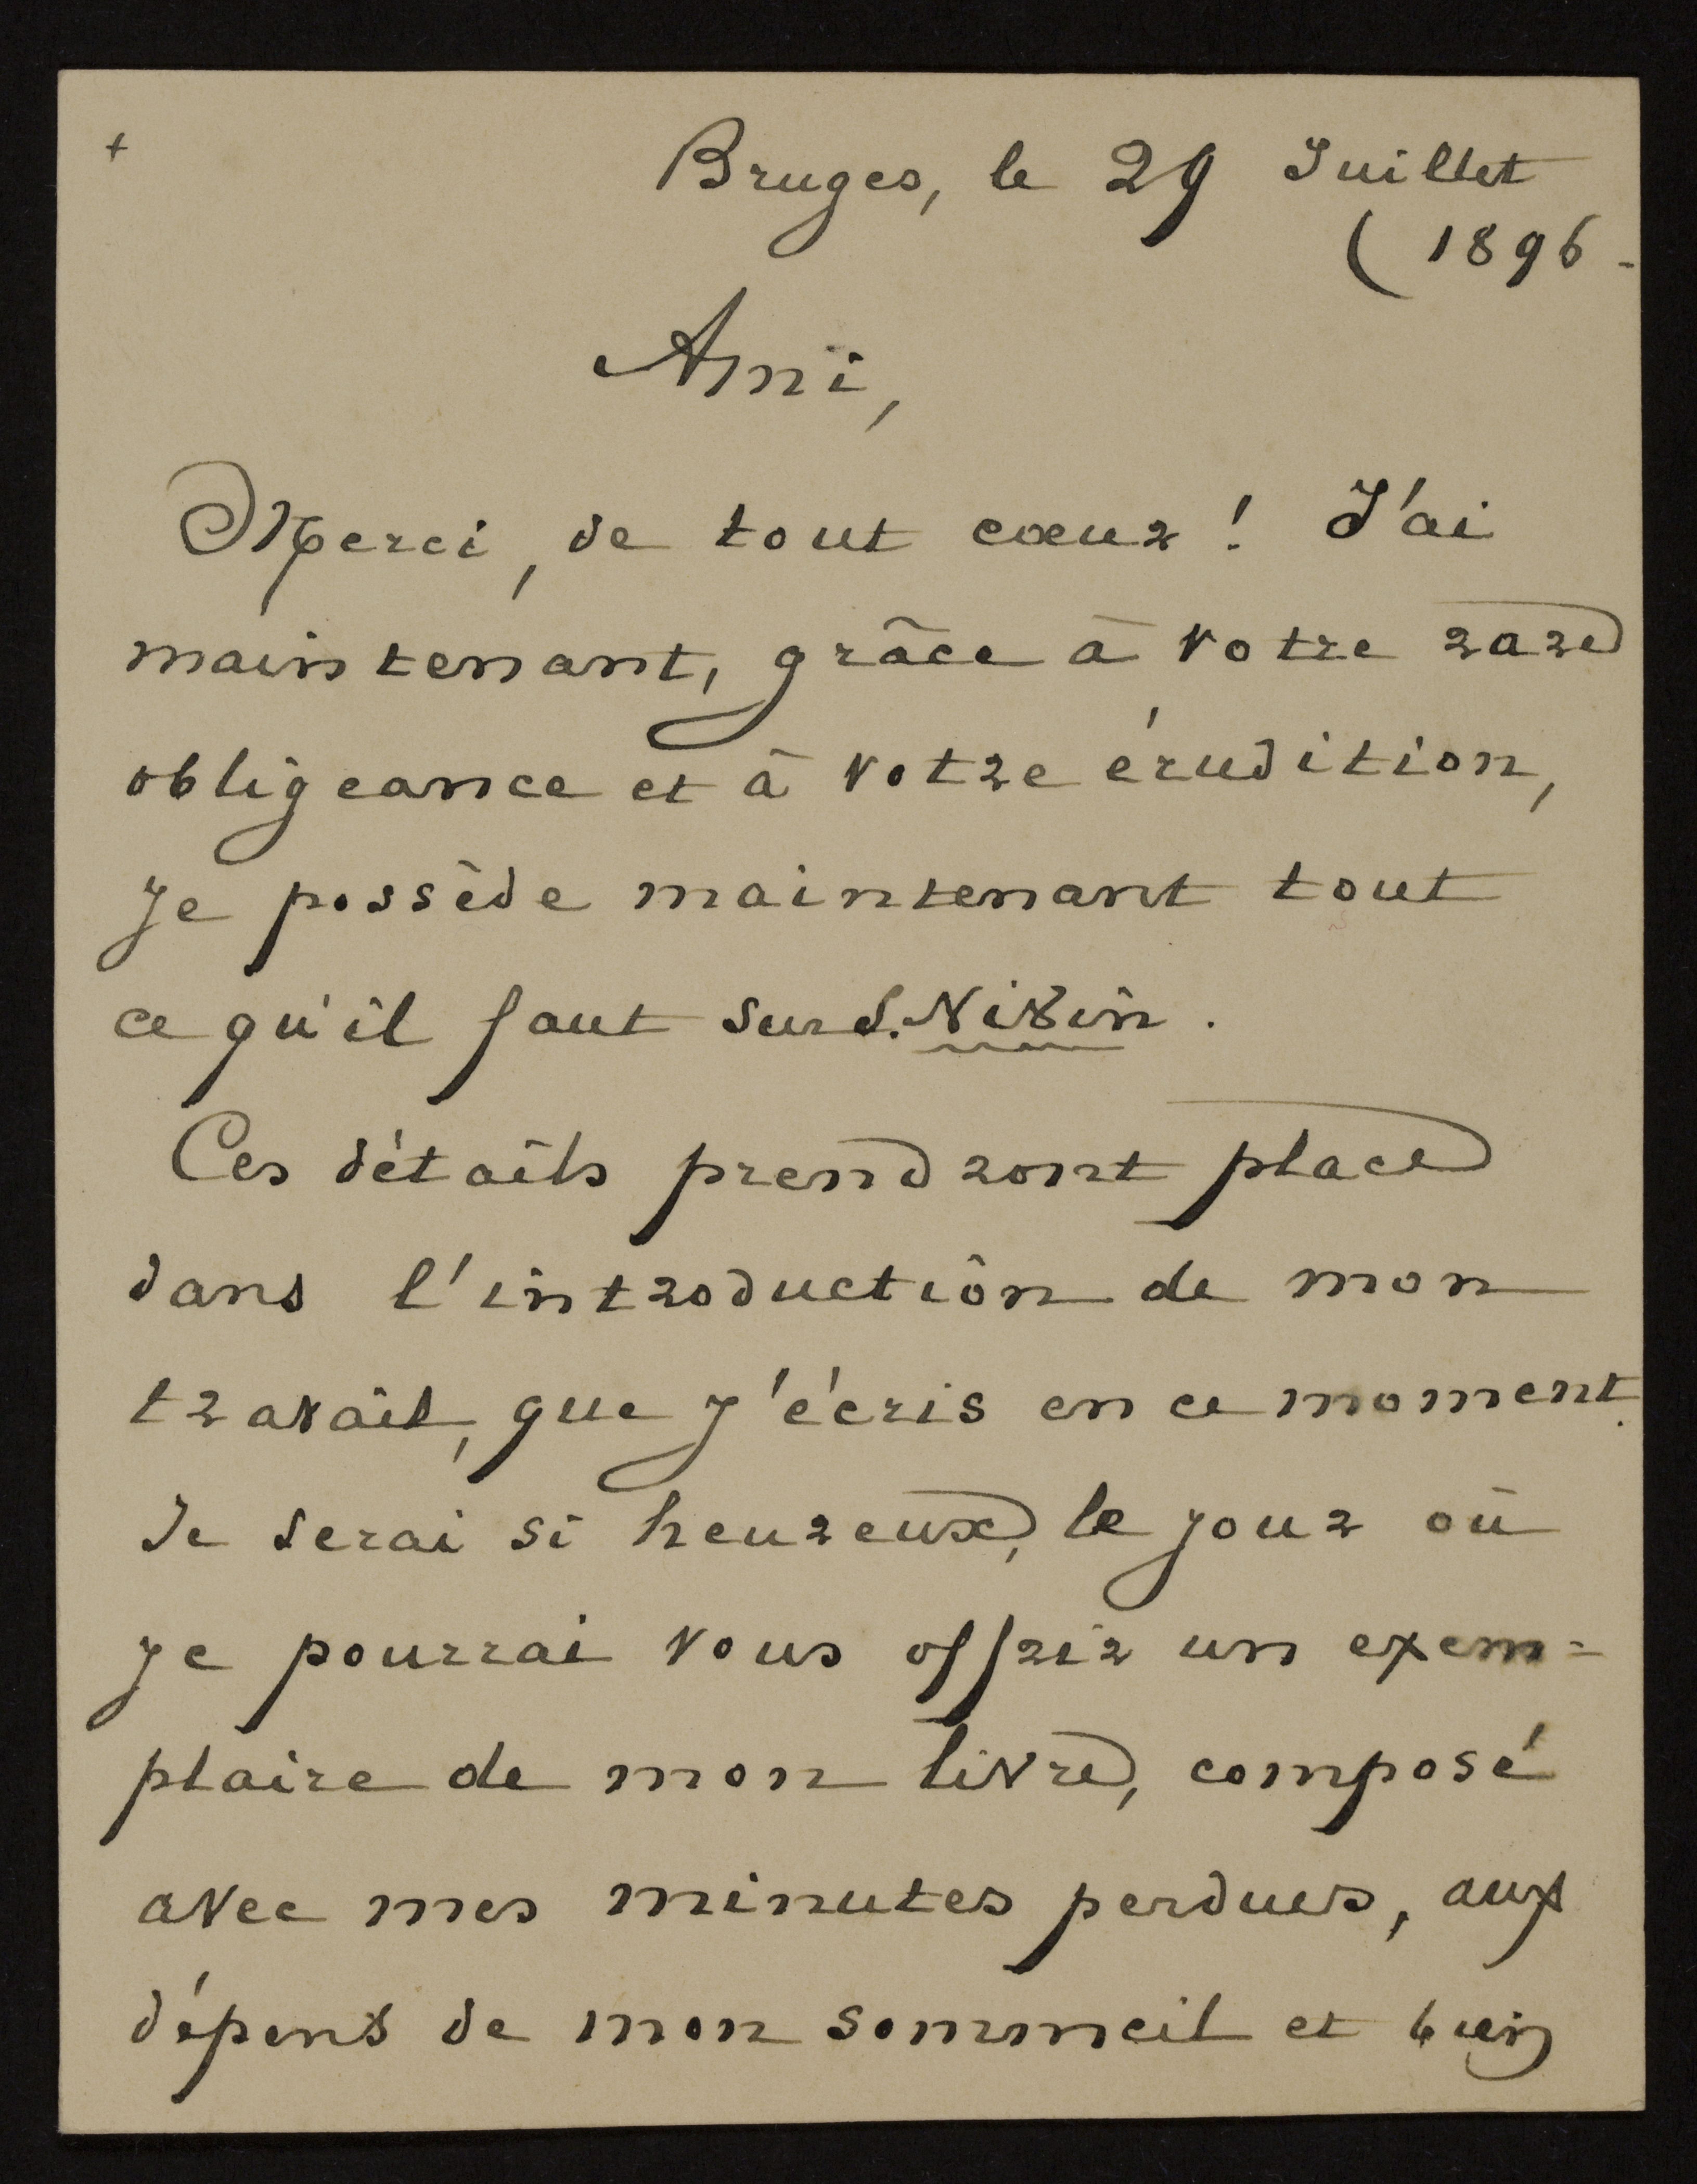 +
Bruges, le 29 Juillet
( 1896 -
Ami,
Merci, de tout cœur ! J'ai
maintenant, grâce à votre rare
obligeance et à votre érudition,
je possède maintenant tout
ce qu'il faut sur S. Nivin.
Ces détails prendront place
dans l'introduction de mon
travail, que j'écris en ce moment.
Je serai si heureux, le jour où
je pourrai vous offrir un exem=
plaire de mon livre, composé
avec mes minutes perdues, aux
dépens de mon sommeil et bien